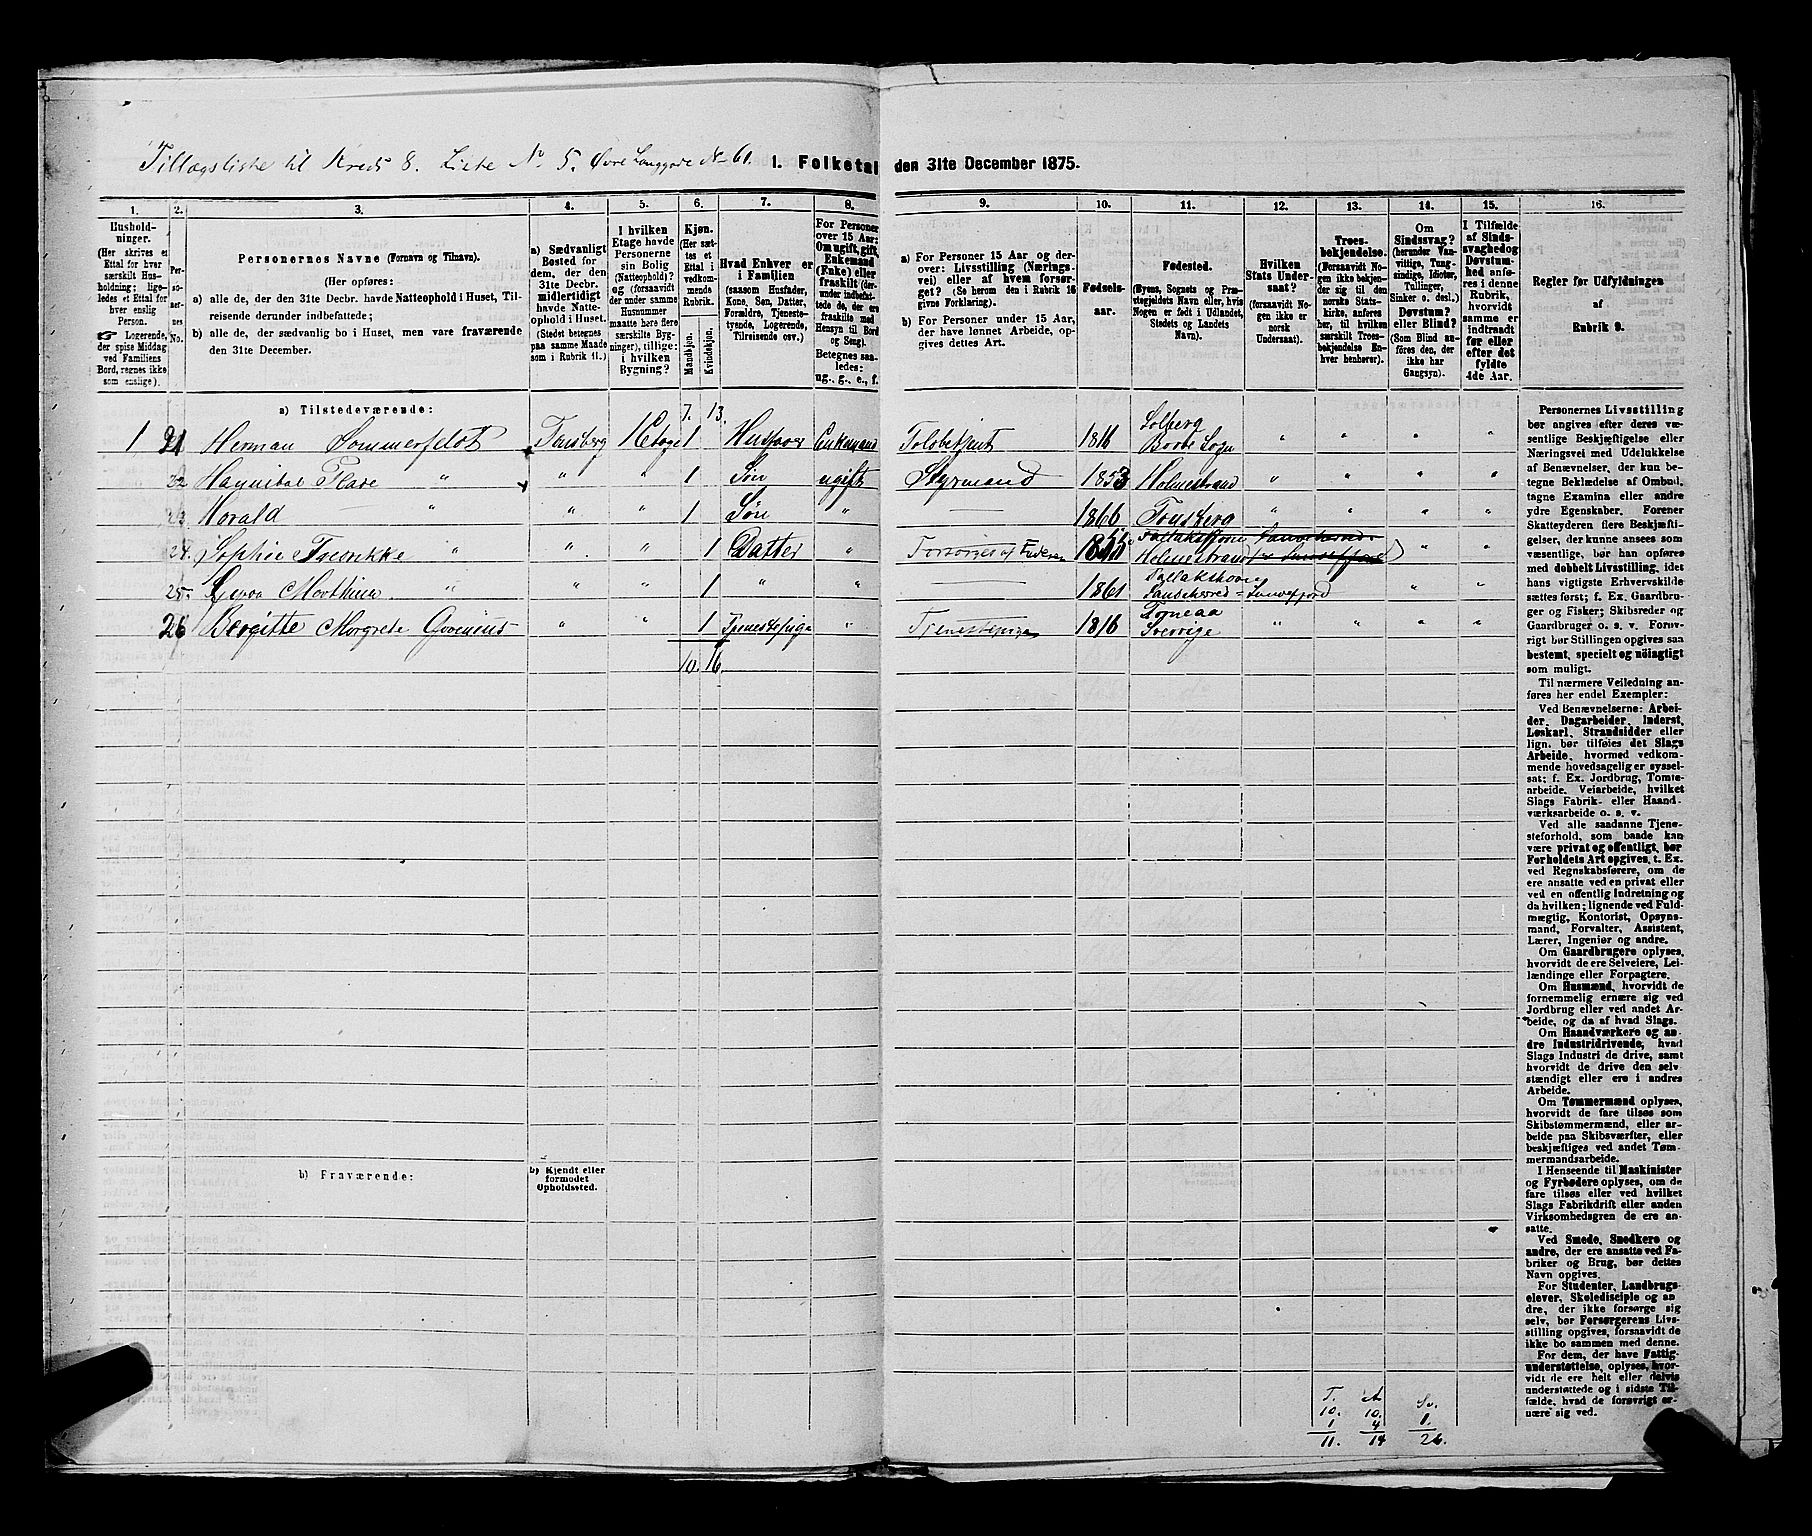 Tillægsliste til Kreds 8. Liste No 5. Øvre Langgade No 61.
1. Folketal den 31te December 1875.
1. 2. 3. 4. 5. 6. 7. 8. 9. 10. 11. 12. 13. 14. 15. 16.
Hushold-
ninger.
(Her skrives et
Ettal for hver
særskilt Hus-
holdning; lige-
ledes et Ettal for
hver enslig
Person.
Logerende,
der spise Middag
ved Familiens
Bord, regnes ikke
som enslige).
Per-
so-
ner-
nes
No.
Personernes Navne (Fornavn og Tilnavn).
(Her opføres:
a) alle de, der den 31te Decbr. havde Natteophold i Huset, Til-
reisende derunder indbefattede;
b) alle de, der sædvanlig bo i Huset, men vare fraværende
den 31te December).
a) Sædvanligt
Bosted for
dem, der den
31te Decbr.
midlertidigt
havde Natte-
ophold i Huset.
(Stedet betegnes
paa samme Maade
som i Rubrik 11.)
I hvilken
Etage havde
Personerne
sin Bolig
(Natteophold)?
og (forsaavidt
der under samme
Husnummer
maatte høre flere
særskilte Byg-
ninger), tillige:
i hvilken
Bygning?
Kjøn.
(Her sæt-
tes et
Ettal i
vedkom-
mende
Rubrik.
Mandkjøn.
Kvindekjøn.
Hvad Enhver er
i Familien
(saasom Husfader,
Kone, Søn, Datter,
Forældre, Tjeneste-
tyende, Logerende,
Tilreisende osv.)
For Personer
over 15 Aar:
Om ugift, gift,
Enkemand
(Enke) eller
fraskilt (der-
under indbefat-
tede de, der ere
fraskilte med
Hensyn til Bord
og Seng).
Betegnes saa-
ledes:
ug., g., e., f.
a) For Personer 15 Aar og der-
over: Livsstilling (Nærings-
vei) eller af hvem forsør-
get? (Se herom den i Rubrik 16
givne Forklaring).
b) For Personer under 15 Aar,
der have lønnet Arbeide, op-
gives dettes Art.
Fødsels-
aar.
Fødested.
(Byens, Sognets og Præ-
stegjeldets Navn eller, hvis
Nogen er født i Udlandet,
Stedets og Landets
Navn).
Hvilken
Stats Under-
saat?
(forsaavidt No-
gen ikke er
norsk
Undersaat).
Troes-
bekjendelse.
(Forsaavidt No-
gen ikke bekjen-
der sig til den
norske Stats-
kirke, anføres
her, til hvilken
særskilt Troes-
bekjendelse En-
hver henhører).
Om
Sindssvag?
(herunder Van-
vittige, Tung-
sindige, Idioter,
Tullinger,
Sinker o. desl.)
Døvstum?
eller Blind?
(Som Blind an-
føres den, der
ikke har
Gangsyn).
I Tilfælde
af Sinds-
svaghed og
Døvstum-
hed anfø-
res i denne
Rubrik,
hvorvidt
samme er
indtraadt
før eller
efter det
fyldte
4de Aar.
Regler for Udfyldningen
af
Rubrik 9.
a) Tilstedeværende:
7. 13.
1 21 Herman Sommerfeldt Tønsberg 1 Etage 1 Husfader Enkemand Toldbetjent 1816 Solberg Borre Sogn " " " "
22 Hannibal " " " 1 Søn ugift Styrmand 1853 Holmestrand " " " "
23 Harald " " " 1 Søn " 1866 Tønsberg " " " "
24. Sophie Fredrikke " " " 1 Datter " Forsørges af Faderen 1855 Holmestrand " "
25. Marthina " " " 1 " " 1861 Sandeherred Sandefjord " "
26 Birgitte Margrete " " 1 Tjenestepige " Tjenestepige 1816 Torneaa Sverrige " " " "
10. 16
b) Fraværende:
b) Kjendt eller
formodet
Opholdssted.
Personernes Livsstilling
bør angives efter deres væ-
sentlige Beskjæftigelse eller
Næringsvei med Udelukkelse
af Benævnelser, der kun be-
tegne Beklædelse af Ombud,
tagne Examina eller andre
ydre Egenskaber. Forener
Skatteyderen flere Beskjæfti-
gelser, der kunne ansees som
væsentlige, bør han opføres
med dobbelt Livsstilling, idet
hans vigtigste Erhvervskilde
sættes først; f. Ex. Gaardbru-
ger og Fisker; Skibsreder og
Gaardbruger o. s. v. Forøv-
rigt bør Stillingen opgives saa
bestemt, specielt og nøiagtigt
som muligt.
Til nærmere Veiledning an-
føres her endel Exempler:
Ved Benævnelserne: Arbei-
der, Dagarbeider, Inderst,
Løskarl, Strandsidder eller
lign. bør tilføies det Slags
Arbeide, hvormed vedkom-
mende hovedsagelig er syssel-
sat; f. Ex. Jordbrug, Tomte-
arbeide, Veiarbeide, hvilket
Slags Fabrik- eller Haand-
værksarbeide o. s. v.
Ved alle saadanne Tjene-
steforhold, som baade kan
være privat og offentligt, bør
Forholdets Art opgives, t. Ex.
ved Regnskabsførere, om de
ere ansatte ved en privat eller
ved en offentlig Indretning og
da hvilken; lignende ved Fuld-
mægtig, Kontorist, Opsyns-
mand, Forvalter, Assistent,
Lærer, Ingeniør og andre.
Om Gaardbrugere oplyses,
hvorvidt de ere Selveiere, Lei-
lændinge eller Forpagtere.
Om Husmænd, hvorvidt de
fornemmelig ernære sig ved
Jordbrug eller ved andet Ar-
beide, og da af hvad Slags.
Om Haandværkere og an-
dre Industridrivende, hvad
Slags Industri de drive, samt
hvorvidt de drive den selv-
stændigt eller ere i andres
Arbeide.
Om Tømmermænd oplyses,
hvorvidt de fare tilsøs som
Skibstømmermænd, eller ar-
beide paa Skibsværfter, eller
beskjæftiges ved andet Tøm-
mermandsarbeide.
I Henseende til Maskinister
og Fyrbødere oplyses, om de
fare tilsøs eller ved hvilket
Slags Fabrikdrift eller anden
Virksomhedsgren de ere an-
satte.
Ved Smede, Snedkere og
andre, der ere ansatte ved Fa-
briker og Brug, bør dettes
Navn opgives.
For Studenter, Landbrugs-
elever, Skoledisciple og an-
dre, der ikke forsørge sig
selv, bør Forsørgerens Livs-
stilling opgives, forsaavidt de
ikke bo sammen med denne.
For dem, der have Fattig-
understøttelse, oplyses, hvor-
vidt de ere helt eller delvis
understøttede og i sidste Til-
fælde, hvad de forøvrigt er-
nære sig ved.
T. A Sv.
10. 10.
1 4 1.
11. 14 26.